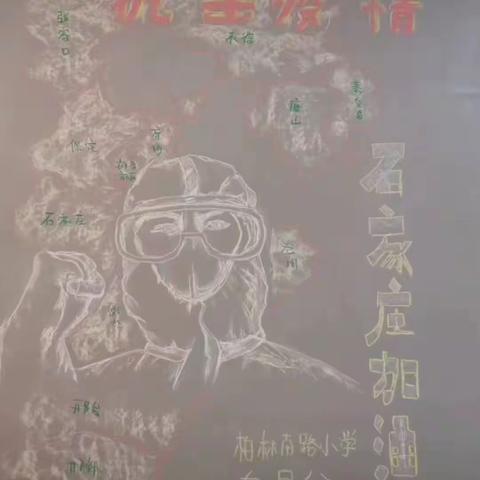 抗击疫情
张家口
承德
秦皇岛
唐山
保定
石家庄
沧州
邢台
邯郸
石家庄加油
柏林南路小学